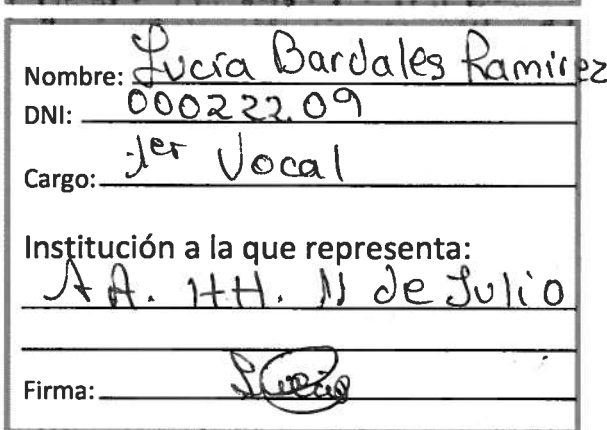 Nombre: Lucía Bardales Ramirez
DNI: 000222.09
Cargo: 1er Vocal
Institución a la que representa:
AA. HH. 11 de Julio
Firma: Lucía